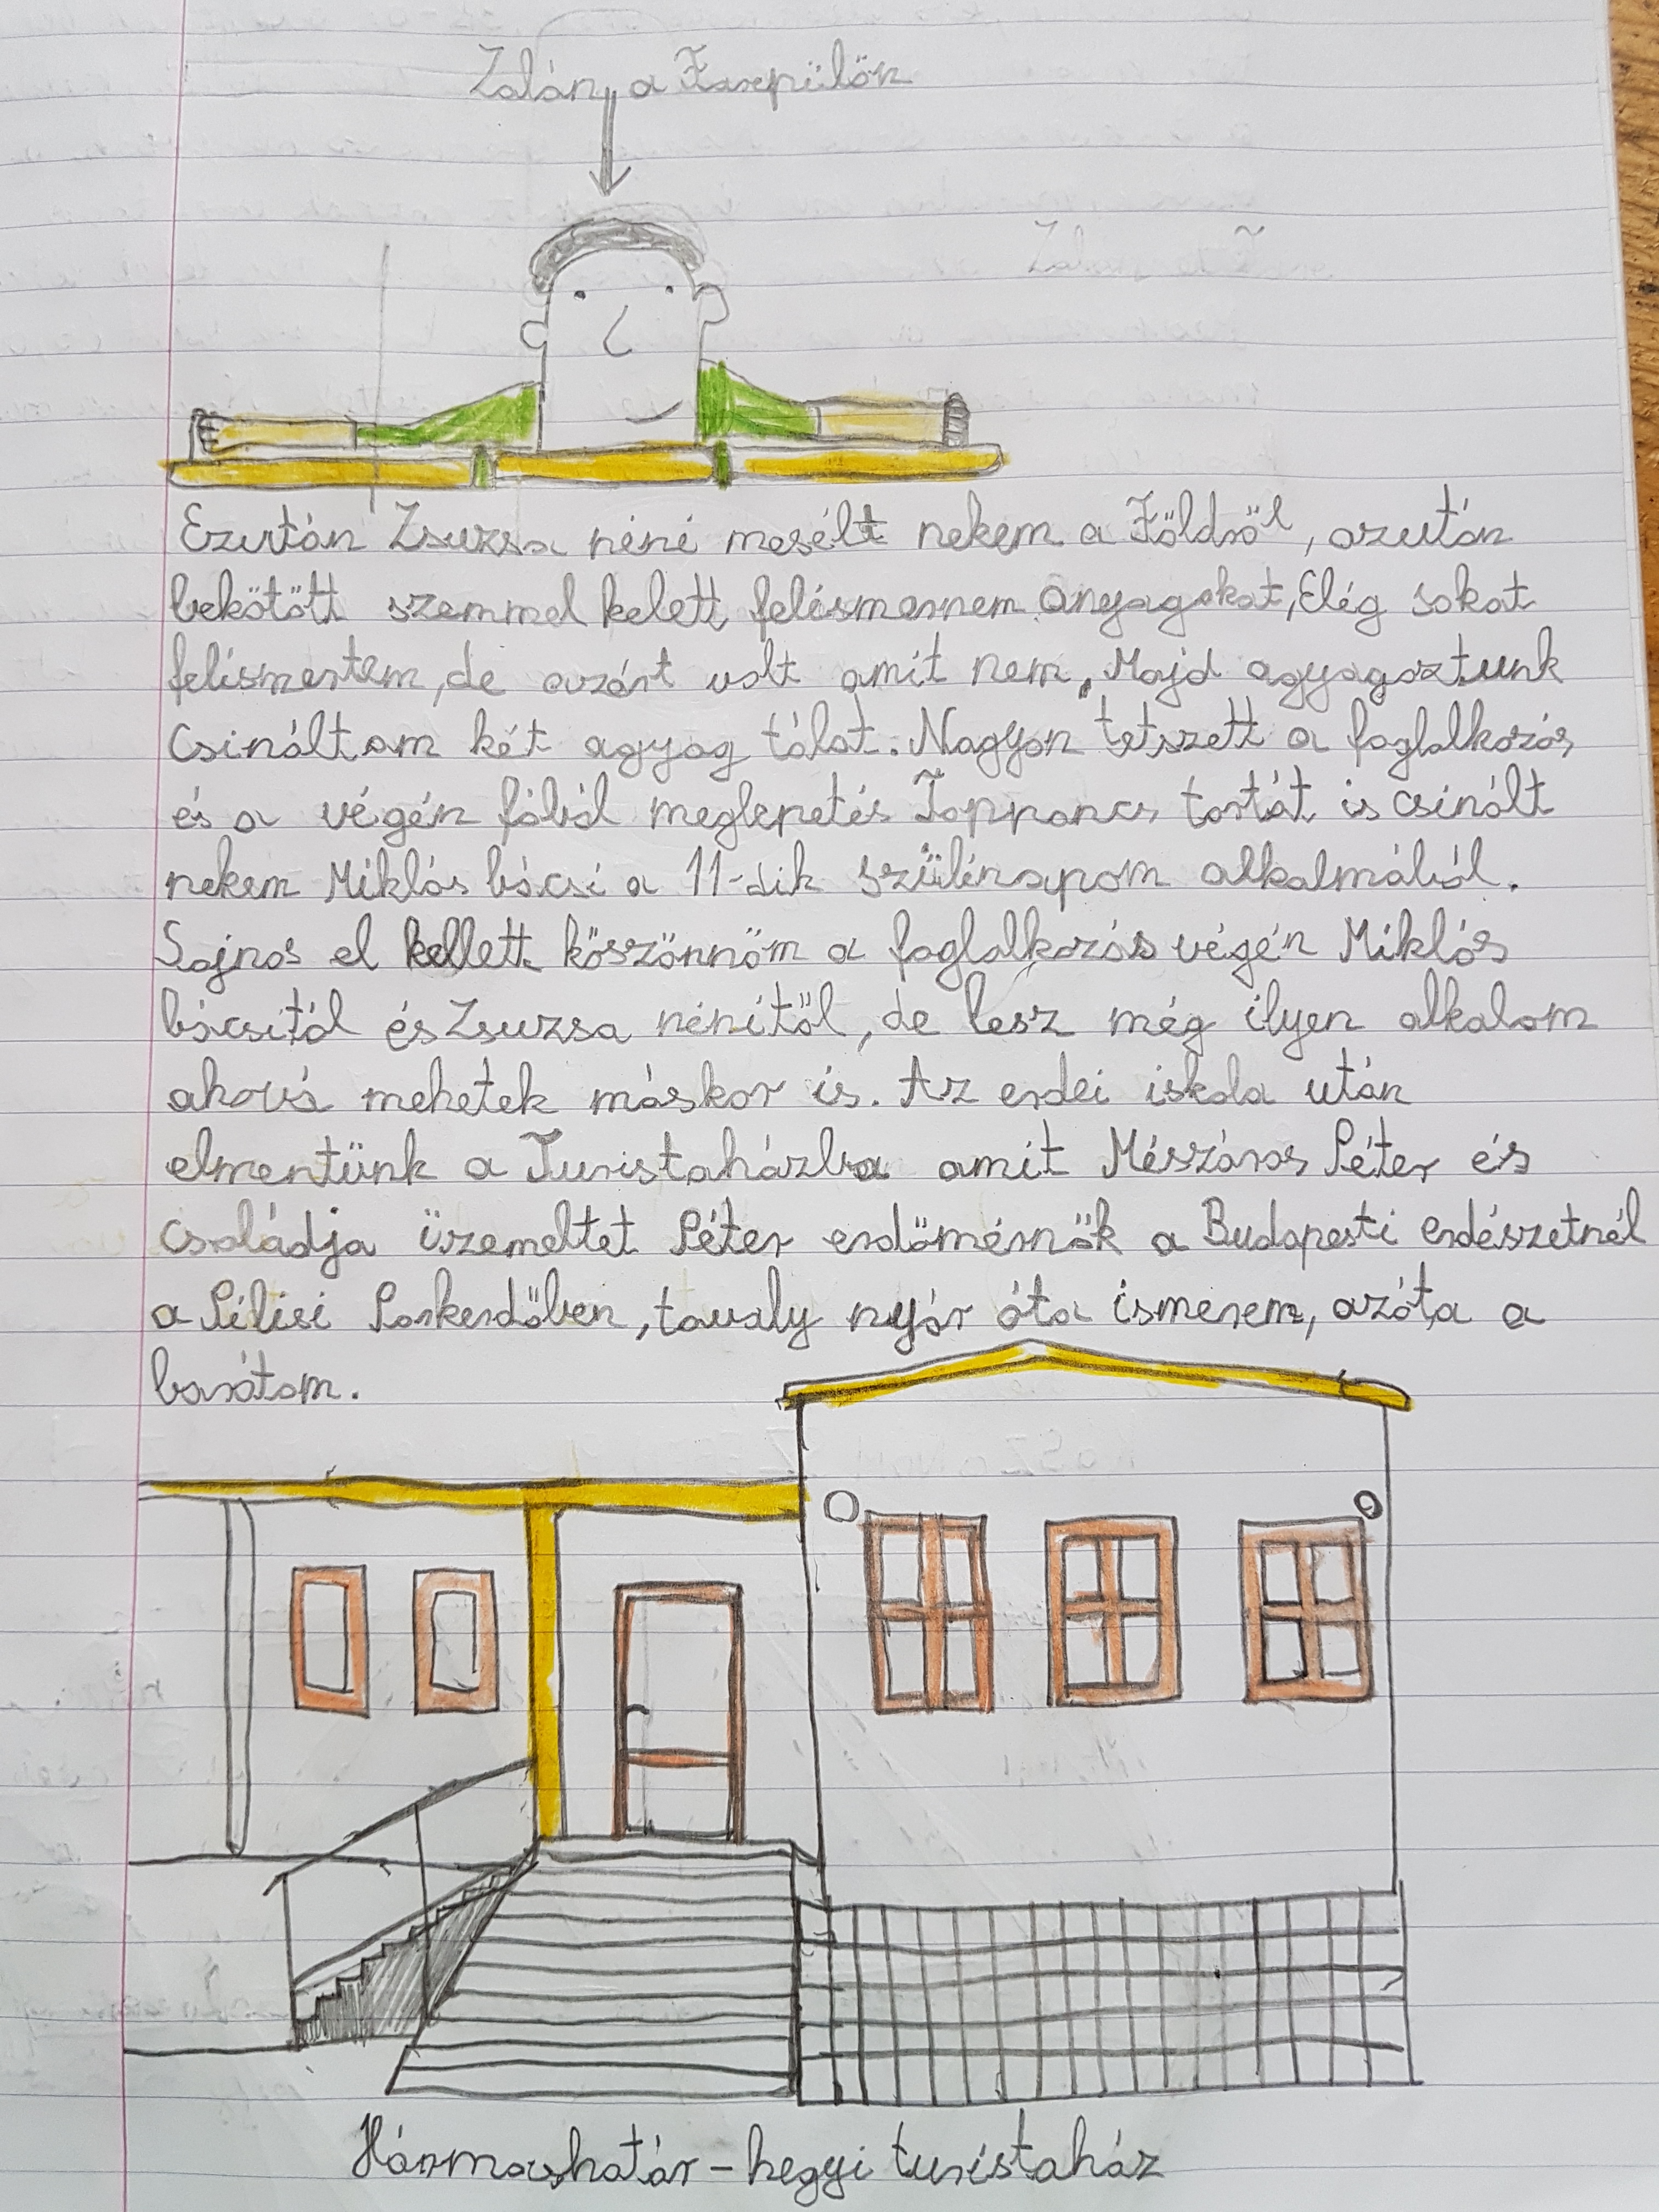 Zalán, a Farepülőn
Ezután Zsuzsa néni mesélt nekem a Földről, azután
bekötött szemmel kelett felismernem anyagokat, Elég sokat
felismertem, de azárt volt amit nem, Majd agyagoztunk
Csináltam két agyag tálat. Nagyon tetszett a foglalkozás
és a végén fából meglepetés Toppancs tortát is csinált
nekem Miklós bácsi a 11-dik szülinapom alkalmából.
Sajnos el kellett köszönnöm a foglalkozás végén Miklós
bácsitól és Zsuzsa nénitől, de lesz még ilyen alkalom
ahová mehetek máskor is. Az erdei iskola után
elmentünk a Turistaházba amit Mészáros Péter és
családja üzemeltet Péter erdőmérnök a Budapesti erdészetnél
a Pilisi Parkerdőben, tavaly nyár óta ismerem, azóta a
barátom.
Hármashatár-hegyi turistaház